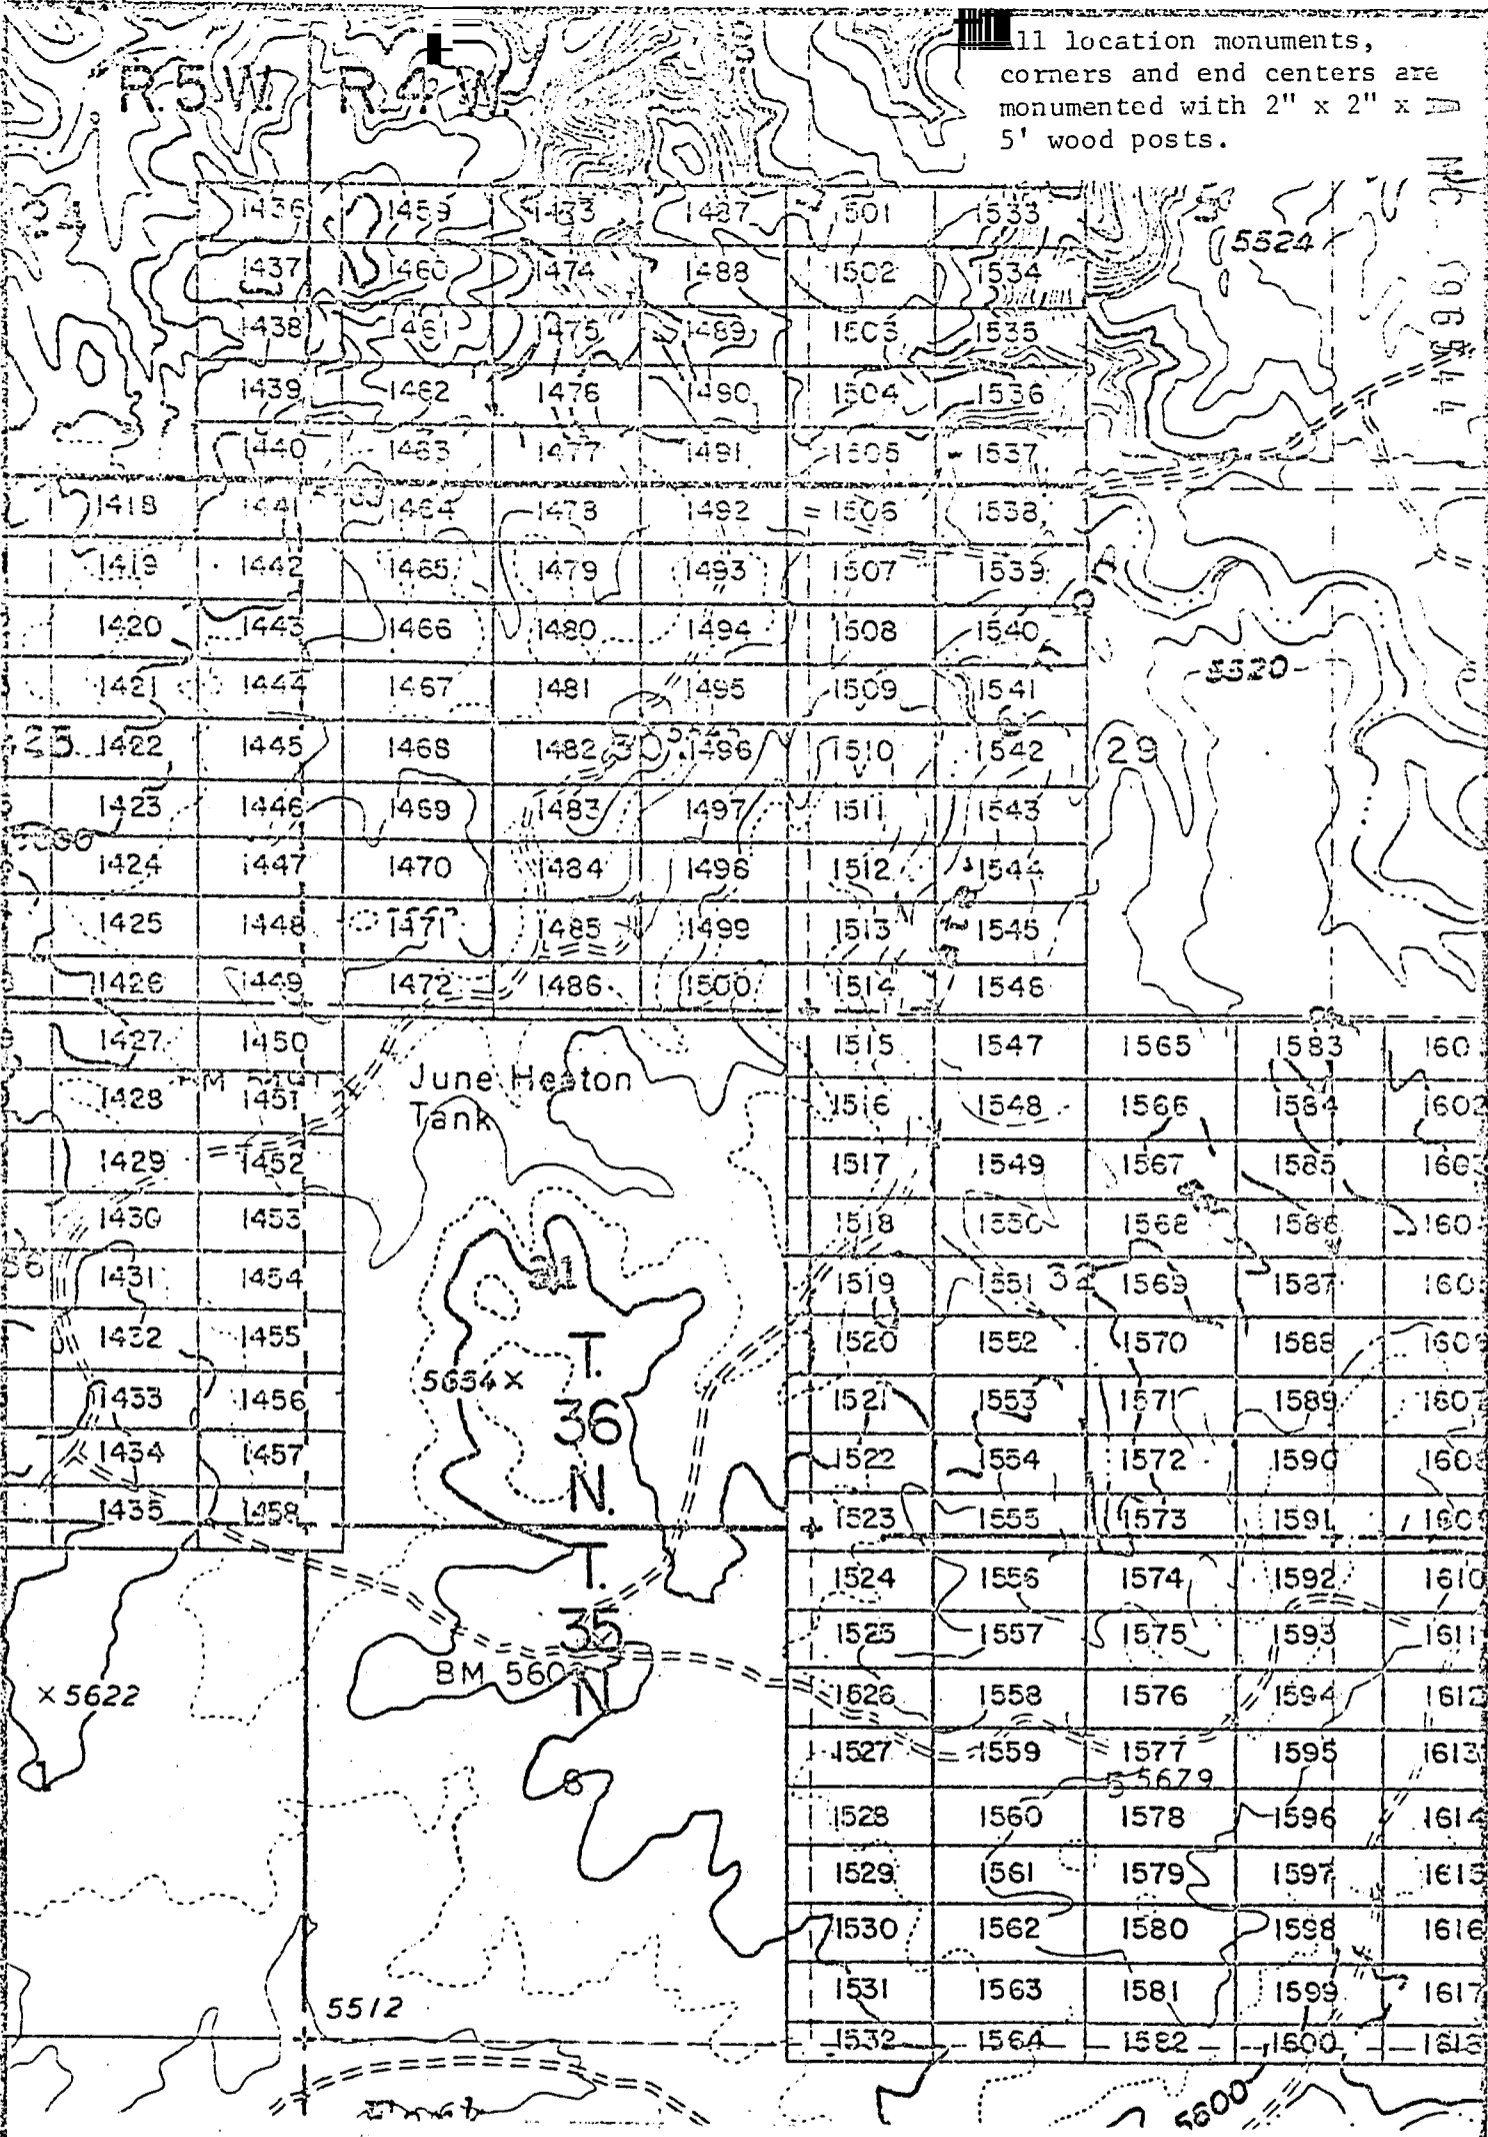 11 location monuments,
corners and end centers are
monumented with 2" x 2" x
5' wood posts.
R.5W. R.4W.
1436 1459 1473 1487 1501 1533
5524
1437 1460 1474 1488 1502 1534
1438 1461 1475 1489 1503 1535
1439 1462 1476 1490 1504 1536
1440 1463 1477 1491 1505 1537
1418 1441 1464 1478 1492 1506 1538
1419 1442 1465 1479 1493 1507 1539
1420 1443 1466 1480 1494 1508 1540
5520
1421 1444 1467 1481 1495 1509 1541
25 1422 1445 1468 1482 30 1496 1510 1542 29
1423 1446 1469 1483 1497 1511 1543
1424 1447 1470 1484 1498 1512 1544
1425 1448 1471 1485 1499 1513 1545
1426 1449 1472 1486 1500 1514 1546
1427 1450 1515 1547 1565 1583 160
June Heaton
Tank
1428 1451 1516 1548 1566 1584 1602
1429 1452 1517 1549 1567 1585 160
1430 1453 1518 1550 1568 1586 160
1431 1454 31 1519 1551 32 1569 1587 160
1432 1455 1520 1552 1570 1588 160
T.
5654 x
36
N.
1433 1456 1521 1553 1571 1589 1607
1434 1457 1522 1554 1572 1590 160
1435 1458 1523 1555 1573 1591 160
T.
35
N
1524 1556 1574 1592 1610
1525 1557 1575 1593 1611
BM 560
x 5622
1526 1558 1576 1594 1612
1527 1559 1577 1595 1613
5 5679
6
1528 1560 1578 1596 1614
1529 1561 1579 1597 1615
1530 1562 1580 1598 1616
1531 1563 1581 1599 1617
5512
1532 1564 1582 1600 1618
5600